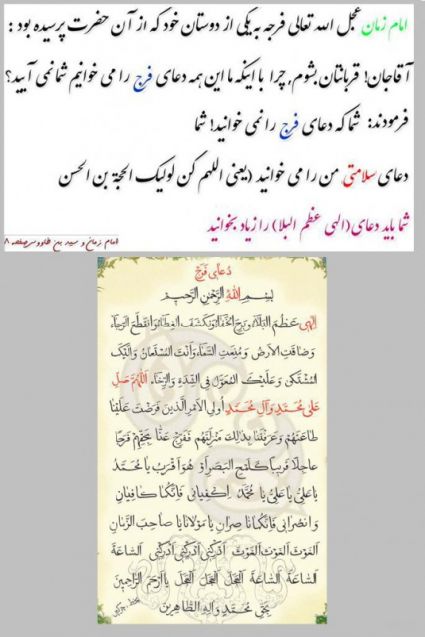 امام زمان عجل الله تعالی فرجه به یکی از دوستان خود که از آن حضرت پرسیده بود :
آقاجان! قربانتان بشوم, چرا با اینکه ما این همه دعای فرج را می خوانیم شما نمی آیید؟
فرمودند: شما که دعای فرج را نمی خوانید! شما
دعای سلامتی من را می خوانید (یعنی اللهم کن لولیک الحجة بن الحسن
شما باید دعای (الهی عظم البلا) را زیاد بخوانید
امام زمان و سید بن طاووس صفحه ۸
دعای فرج
بِسْمِ اللهِ الرَّحْمنِ الرَّحیمِ
اِلهی عَظُمَ الْبَلاءُ وَبَرِحَ الْخَفاءُ وَانْکَشَفَ الْغِطاءُ وَانْقَطَعَ الرَّجاءُ
وَضاقَتِ الْاَرْضُ وَمُنِعَتِ السَّماءُ وَاَنْتَ الْمُسْتَعانُ وَاِلَیْکَ
الْمُشْتَکی وَعَلَیْکَ الْمُعَوَّلُ فِی الشِّدَّةِ وَالرَّخاءِ اَللّهُمَّ صَلِّ
عَلی مُحَمَّدٍ وَآلِ مُحَمَّدٍ اُولِی الْاَمْرِ الَّذینَ فَرَضْتَ عَلَیْنا
طاعَتَهُمْ وَعَرَّفْتَنا بِذلِکَ مَنْزِلَتَهُمْ فَفَرِّجْ عَنّا بِحَقِّهِمْ فَرَجًا
عاجِلًا قَریبًا کَلَمْحِ الْبَصَرِ اَوْ هُوَ اَقْرَبُ یا مُحَمَّدُ
یا عَلِیُّ یا عَلِیُّ یا مُحَمَّدُ اِکْفِیانی فَاِنَّکُما کافِیانِ
وَانْصُرانی فَاِنَّکُما ناصِرانِ یا مَوْلانا یا صاحِبَ الزَّمانِ
الْغَوْثَ الْغَوْثَ الْغَوْثَ اَدْرِکْنی اَدْرِکْنی اَدْرِکْنی السّاعَةَ
السّاعَةَ السّاعَةَ الْعَجَلَ الْعَجَلَ الْعَجَلَ یا اَرْحَمَ الرّاحِمینَ
بِحَقِّ مُحَمَّدٍ وَآلِهِ الطّاهِرینَ